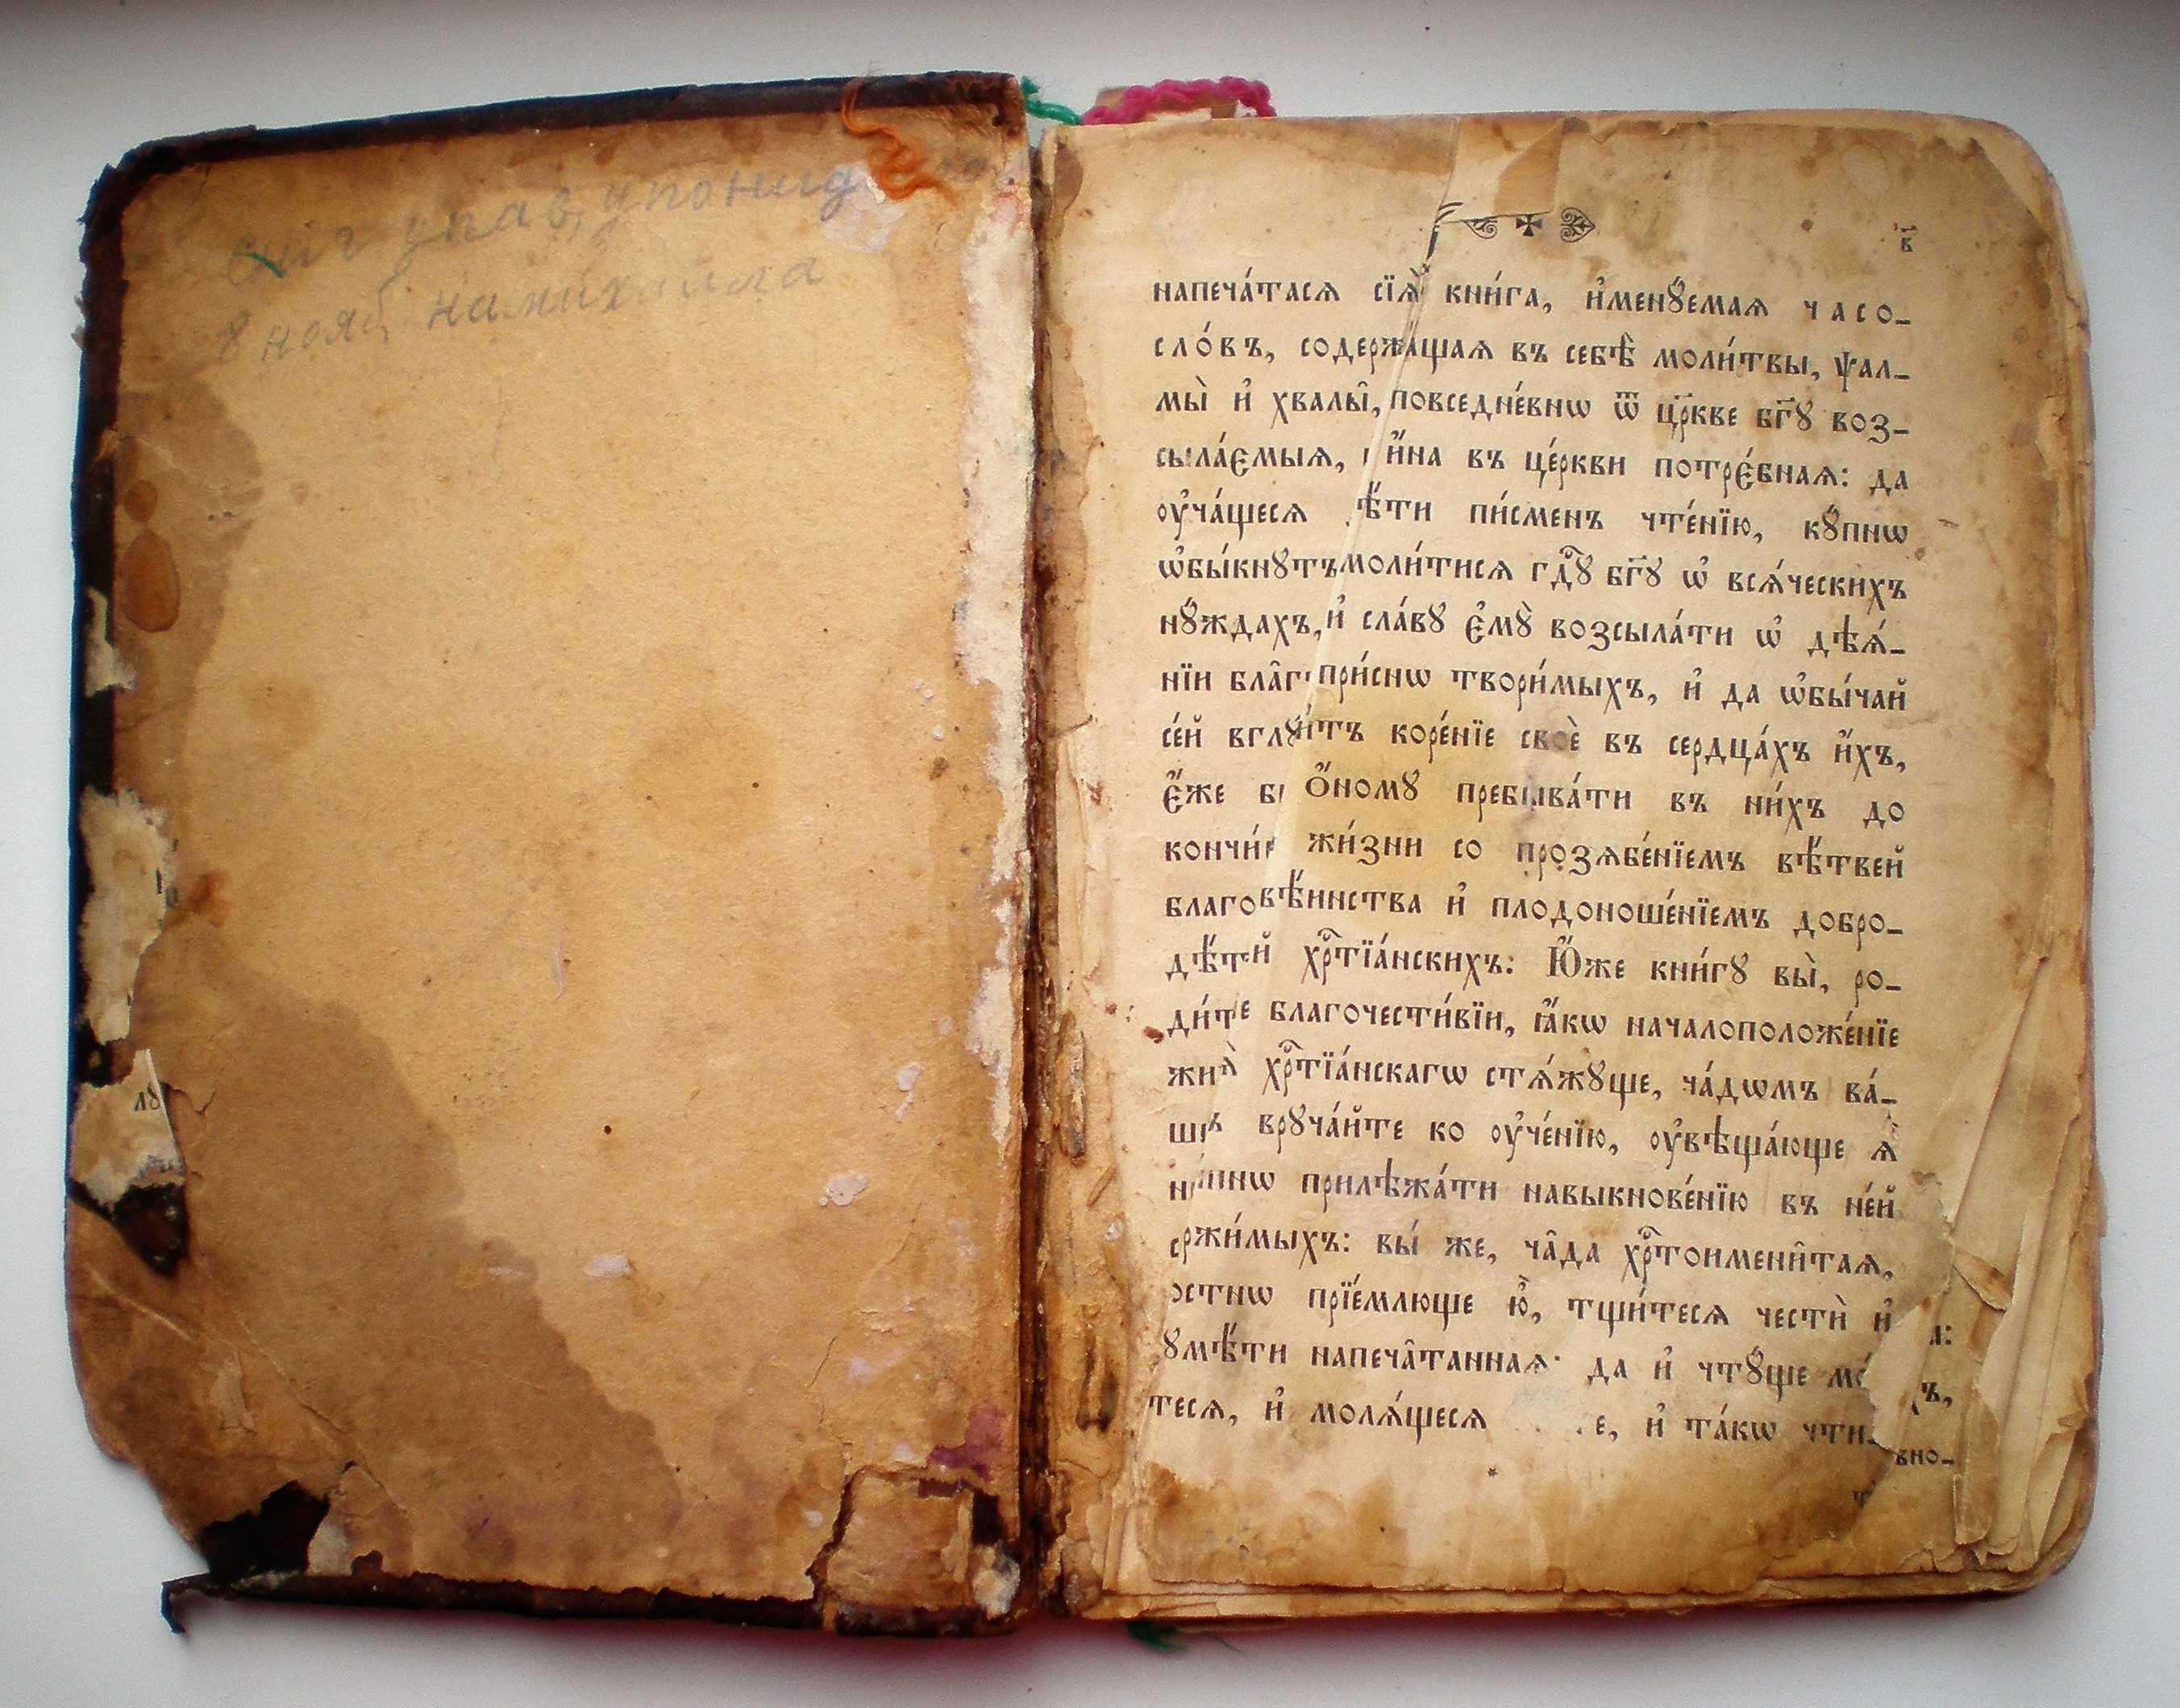 сніг упав, упонид
8 нояб намихайла
в҃
напеча́тасѧ сїѧ̀ кни́га, и҆менꙋ́емаѧ часо-
сло́въ, содержа́щаѧ въ себѣ̀ моли́твы, ѱал-
мы̀ и҆ хвалы̑, повседне́внѡ ѿ цр҃кве бг҃ꙋ воз-
сыла́ємыѧ, и҆́на въ це́ркви потрє́бнаѧ: да
оу҆ча́щесѧ ѣ́ти пи́сменъ чте́нїю, кꙋ́пнѡ
ѡ҆бы́кнꙋтъ моли́тисѧ гдⷭ҇ꙋ бг҃ꙋ ѡ҆ всѧ́ческихъ
нꙋ́ждахъ, и҆ сла́вꙋ є҆мꙋ̀ возсыла́ти ѡ҆ дѣѧ́-
нїи бла̑г при́снѡ твори́мыхъ, и҆ да ѡ҆бы́чай
се́й вглꙋ́итъ коре́нїе своѐ въ сердца́хъ и҆́хъ,
є҆́же б ѻ҆́номꙋ пребыва́ти въ ни́хъ до
кончи́ жи́зни со прозѧбе́нїемъ вѣ́твей
благовѣ́инства и҆ плодоноше́нїемъ добро-
дѣ́тй хрⷭ҇тїа́нскихъ: Ю҆́же кни́гꙋ вы̀, ро-
ди́те благочести́вїи, ꙗ҆́кѡ началоположе́нїе
жиѧ̀ хрⷭ҇тїа́нскагѡ стѧ́жꙋще, ча́дѡмъ ва́-
шъ врꙋча́йте ко оу҆че́нїю, оу҆вѣща́юще ѧ҆̀
нѡ прилѣжа́ти навыкнове́нїю въ не́й
ержи́мыхъ: вы́ же, ча̑да хрⷭ҇тоимени̑таѧ,
остнѡ прїе́млюще ю҆̀, тщи́тесѧ чести̑ и҆
ꙋмѣ́ти напеча̑таннаѧ· да и҆ чтꙋ́ще мо́
тесѧ, и҆ молѧ́щесѧ е, и҆ та́кѡ чти
лꙋ
а:
ъ,
вно-